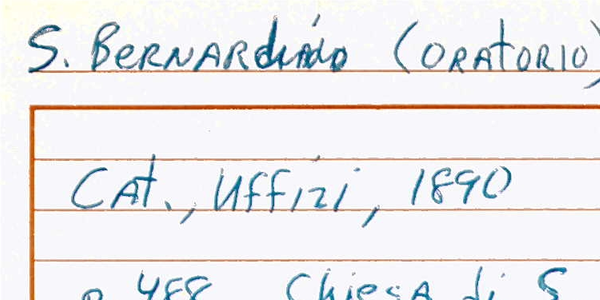 S. BERNARdino (ORATORIO)
CAt., Uffizi, 1890
p. 488 Chiesa di S